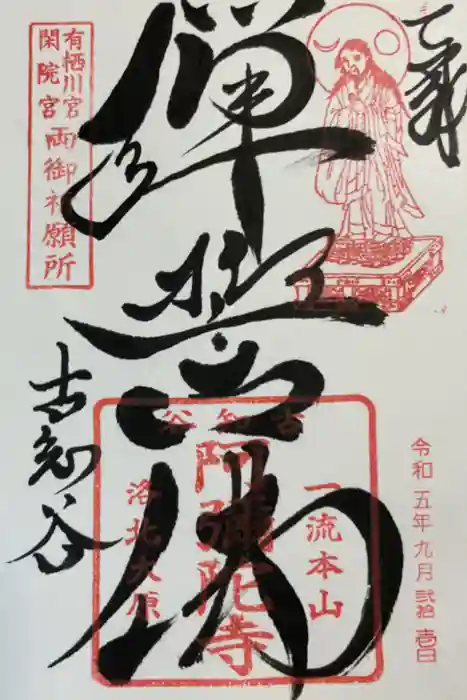 有栖川宮
閑院宮
両御祈願所
彈誓佛
古知谷
古知谷
一流本山
阿彌陀寺
洛北大原
令和五年九月弐拾壱日